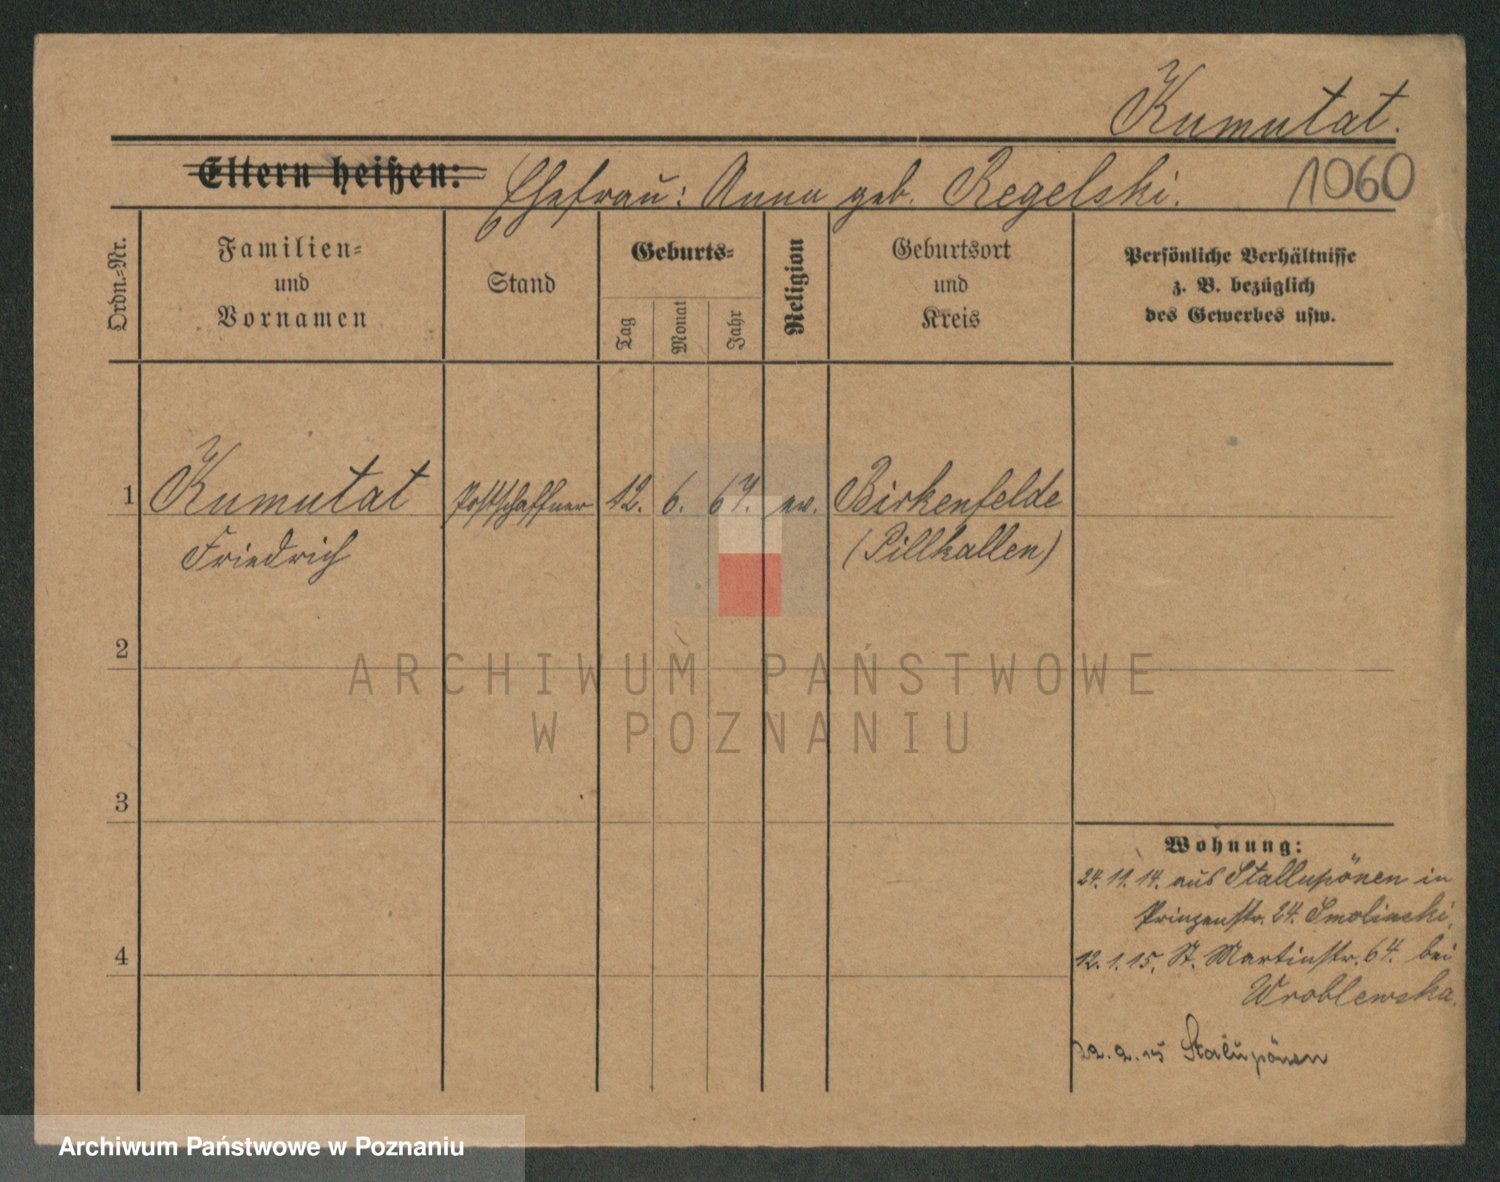 Kumutat.
Eltern heißen: Ehefrau: Anna geb. Regelski.
1060
Ordn.=Nr.
Familien=
und
Vornamen
Stand
Geburts=
Tag
Monat
Jahr
Religion
Geburtsort
und
Kreis
Persönliche Verhältnisse
z. B. bezüglich
des Gewerbes usw.
1 Kumutat Postschaffner 12. 6. 67. ev. Birkenfelde
Friedrich (Pillkallen)
2
ARCHIWUM PAŃSTWOWE
W POZNANIU
3
Wohnung:
24. 11. 14. aus Stallupönen in
Prinzenstr. 24. Smolinski,
4
12. 1. 15. St. Martinstr. 64. bei
Wroblewska.
22. 2. 15 Stalupönen
Archiwum Państwowe w Poznaniu